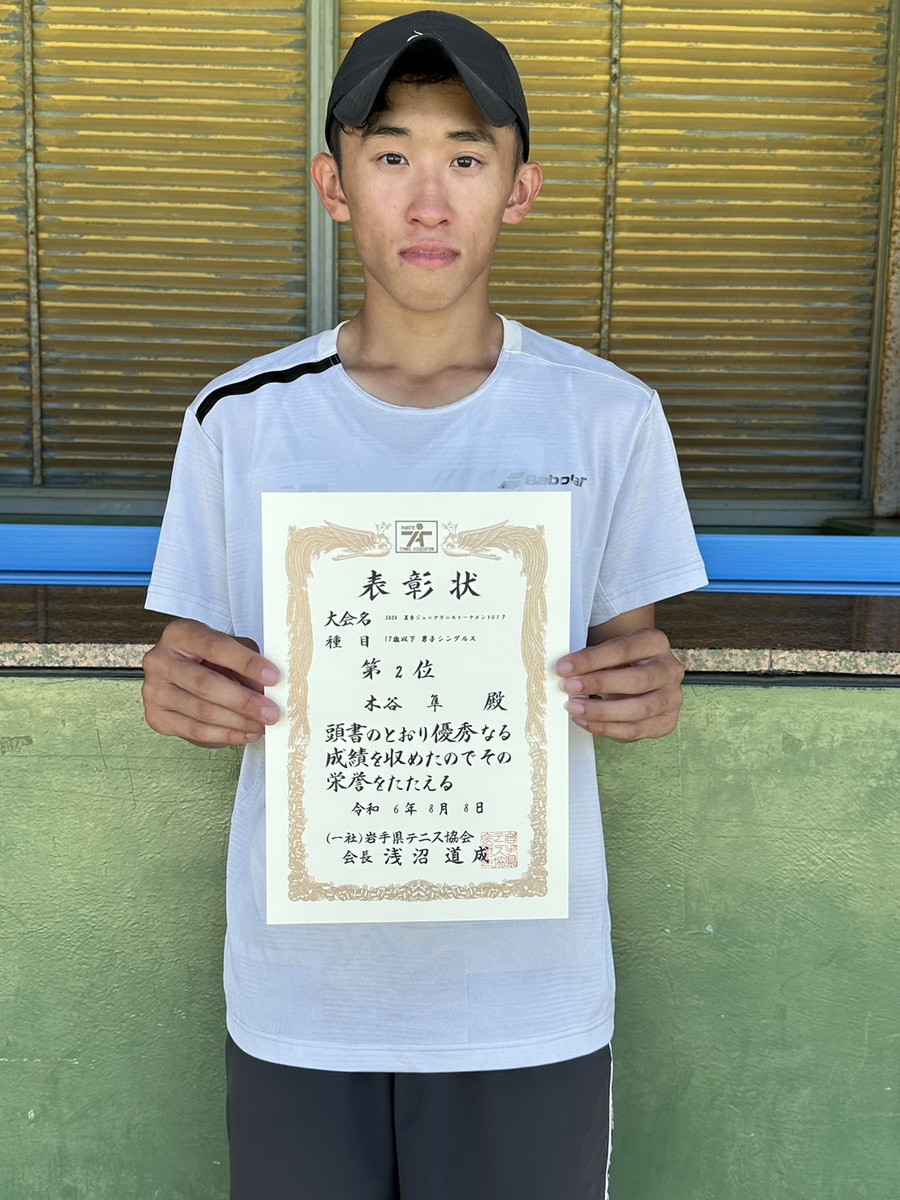 Babolat
IWATE
TENNIS ASSOCIATION
表彰状
大会名 2024 夏季ジュニアテニストーナメントU17
種目 17歳以下 男子シングルス
第2位
木谷 隼 殿
頭書のとおり優秀なる
成績を収めたのでその
栄誉をたたえる
令和 6年 8月 8日
(一社)岩手県テニス協会
会長 浅沼 道成